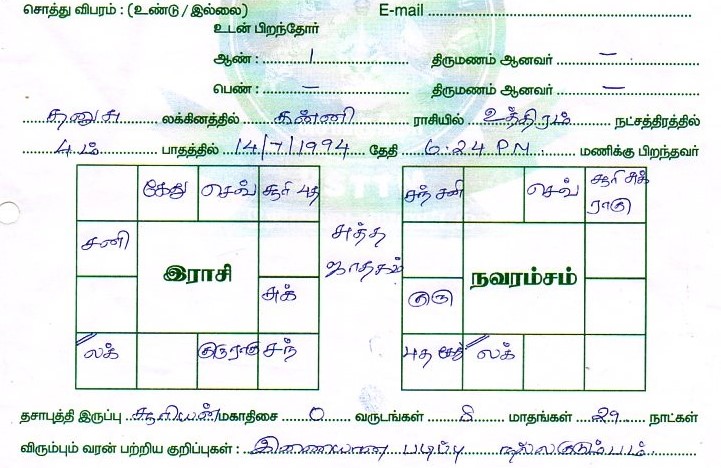 சொத்து விபரம் : (உண்டு / இல்லை) E-mail
உடன் பிறந்தோர்
ஆண் : 1 திருமணம் ஆனவர் –
பெண் : – திருமணம் ஆனவர் –
தனுசு லக்கினத்தில் கன்னி ராசியில் உத்திரம் நட்சத்திரத்தில்
4ம் பாதத்தில் 14/7/1994 தேதி 6:24 PM மணிக்கு பிறந்தவர்
கேது செவ் சூரி புத
சனி
இராசி
சுக்
லக் குரு ராகு சந்
சுத்த
ஜாதகம்
சந் சனி செவ் சூரி சுக்
ராகு
நவரம்சம்
குரு
புத கேது லக்
தசாபுத்தி இருப்பு சூரியன் மகாதிசை 0 வருடங்கள் 8 மாதங்கள் 29 நாட்கள்
விரும்பும் வரன் பற்றிய குறிப்புகள் : இணையான படிப்பு நல்லகுடும்பம்